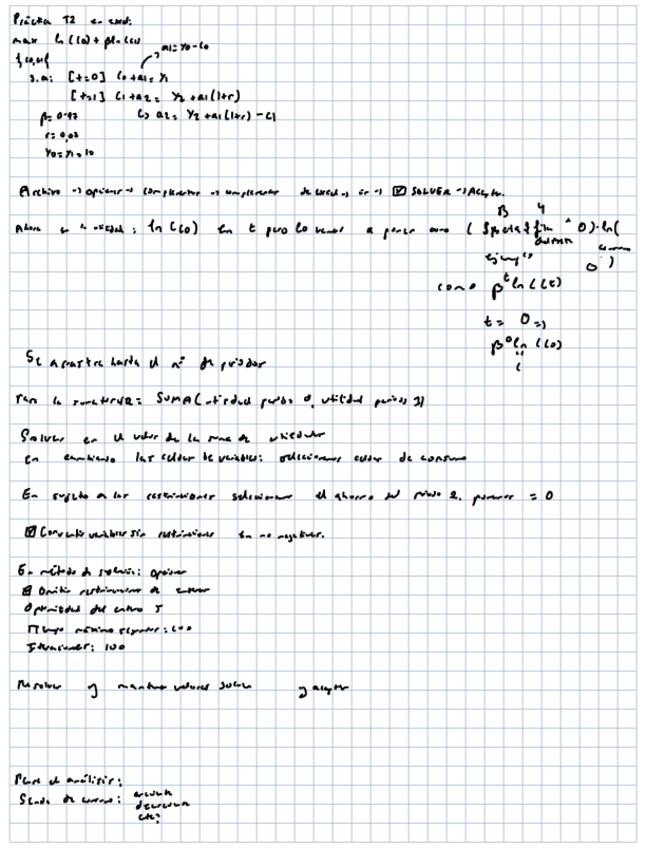 Práctica T2 en excel:
max ln(c0) + β ln(c1)
{c0,c1}
a1 = y0 - c0
s.a: [t=0] c0 + a1 = y1
[t=1] c1 + a2 = y2 + a1(1+r)
β = 0.97 ↳ a2 = y2 + a1(1+r) - c1
r = 0,03
y0 = y1 = 10
Archivo → opciones → complementos → complementos de excel → ir → ☑ SOLVER → Aceptar.
Ahora en la utilidad: ln(c0) en t pero lo vamos a poner como ( ^ 0)·ln(
B 4
consumo
ejemplo 0)
como β^t ln(ct)
t = 0 =>
β^0 ln(c0)
Se arrastra hasta el nº de periodos
Para la sumatoria = SUMA(utilidad periodo 0, utilidad periodo 1)
Solver en el valor de la suma de utilidades
en cambiando las celdas de variables: seleccionamos celdas de consumo
En sujeto a las restricciones seleccionamos el ahorro del periodo 2, ponemos = 0
☑ Convertir variables sin restricciones en no negativas.
En método de solución: opciones
☑ Omitir restricciones de enteros
Optimalidad del entero 5
Tiempo máximo : 100
Iteraciones: 100
Resolver y mantener valores solver y aceptar
Para el análisis:
Senda de consumo: creciente
decreciente
cte?